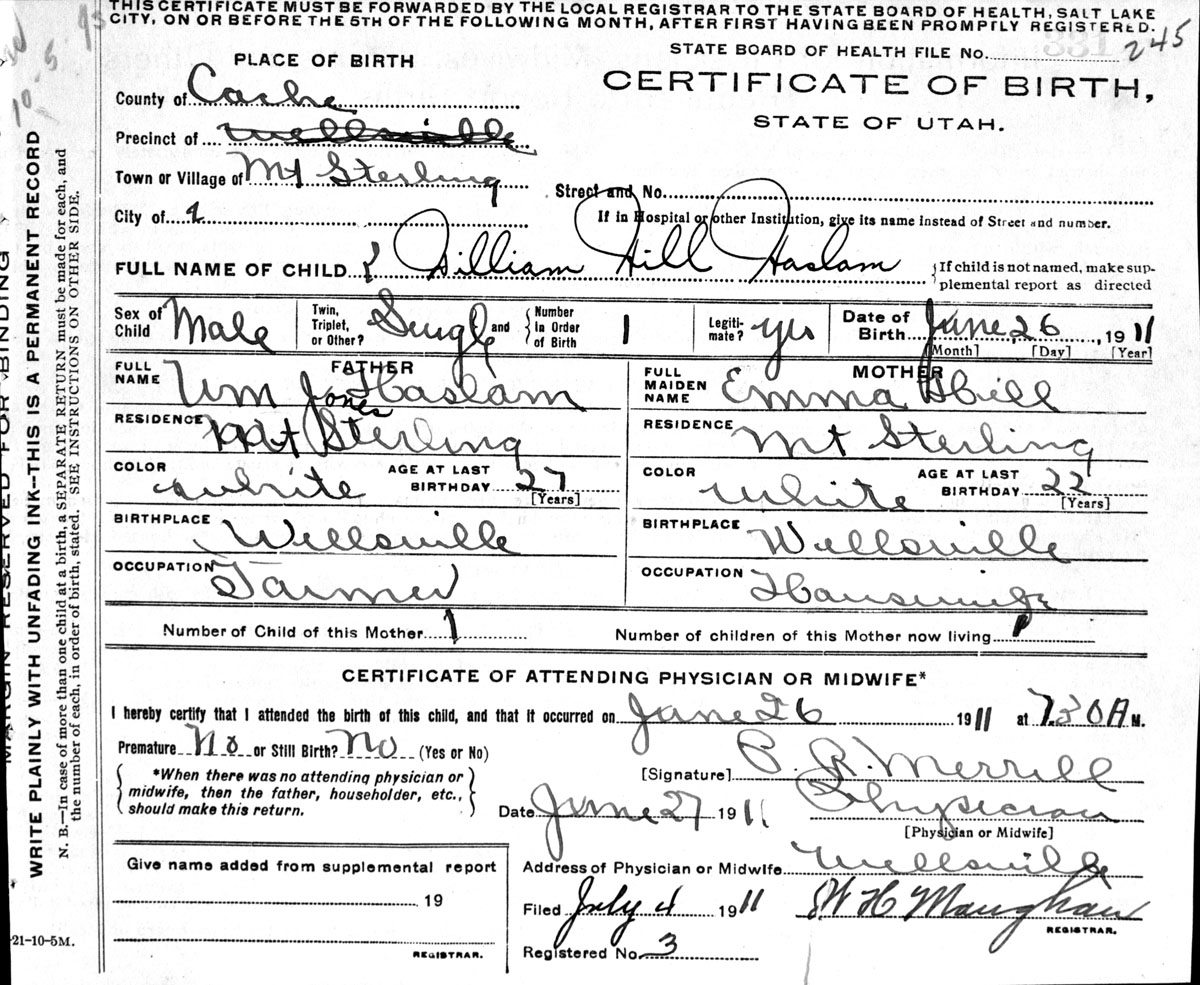 THIS CERTIFICATE MUST BE FORWARDED BY THE LOCAL REGISTRAR TO THE STATE BOARD OF HEALTH, SALT LAKE
CITY, ON OR BEFORE THE 5TH OF THE FOLLOWING MONTH, AFTER FIRST HAVING BEEN PROMPTLY REGISTERED.
245
STATE BOARD OF HEALTH FILE No.
CERTIFICATE OF BIRTH,
STATE OF UTAH.
PLACE OF BIRTH
County of Cache
Precinct of Wellsville
Town or Village of Mt Sterling
Street and No.
City of
If in Hospital or other Institution, give its name instead of Street and number.
FULL NAME OF CHILD { William Hill Haslam } If child is not named, make sup-
plemental report as directed
Sex of Child Male
Twin, Triplet, or Other? Single and { Number In Order of Birth 1
Legiti-mate? yes
Date of Birth June 26, 1911
[Month] [Day] [Year]
FATHER
FULL NAME Wm Jones Haslam
RESIDENCE Mt Sterling
COLOR White AGE AT LAST BIRTHDAY 27
[Years]
BIRTHPLACE Wellsville
OCCUPATION Farmer
MOTHER
FULL MAIDEN NAME Emma Hill
RESIDENCE Mt Sterling
COLOR White AGE AT LAST BIRTHDAY 22
[Years]
BIRTHPLACE Wellsville
OCCUPATION Housewife
Number of Child of this Mother 1
Number of children of this Mother now living 1
CERTIFICATE OF ATTENDING PHYSICIAN OR MIDWIFE*
I hereby certify that I attended the birth of this child, and that it occurred on June 26 1911 at 7.30 A M.
Premature No or Still Birth? No (Yes or No)
*When there was no attending physician or
midwife, then the father, householder, etc.,
should make this return.
[Signature] P. R. Merrill
Date June 27 1911 Physician
[Physician or Midwife]
Give name added from supplemental report
19
REGISTRAR.
Address of Physician or Midwife Wellsville
Filed July 4 1911 W H Maughan
REGISTRAR.
Registered No. 3
-21-10-5M.
MARGIN RESERVED FOR BINDING
WRITE PLAINLY WITH UNFADING INK--THIS IS A PERMANENT RECORD
N. B.—In case of more than one child at a birth, a SEPARATE RETURN must be made for each, and
the number of each, in order of birth, stated. SEE INSTRUCTIONS ON OTHER SIDE.